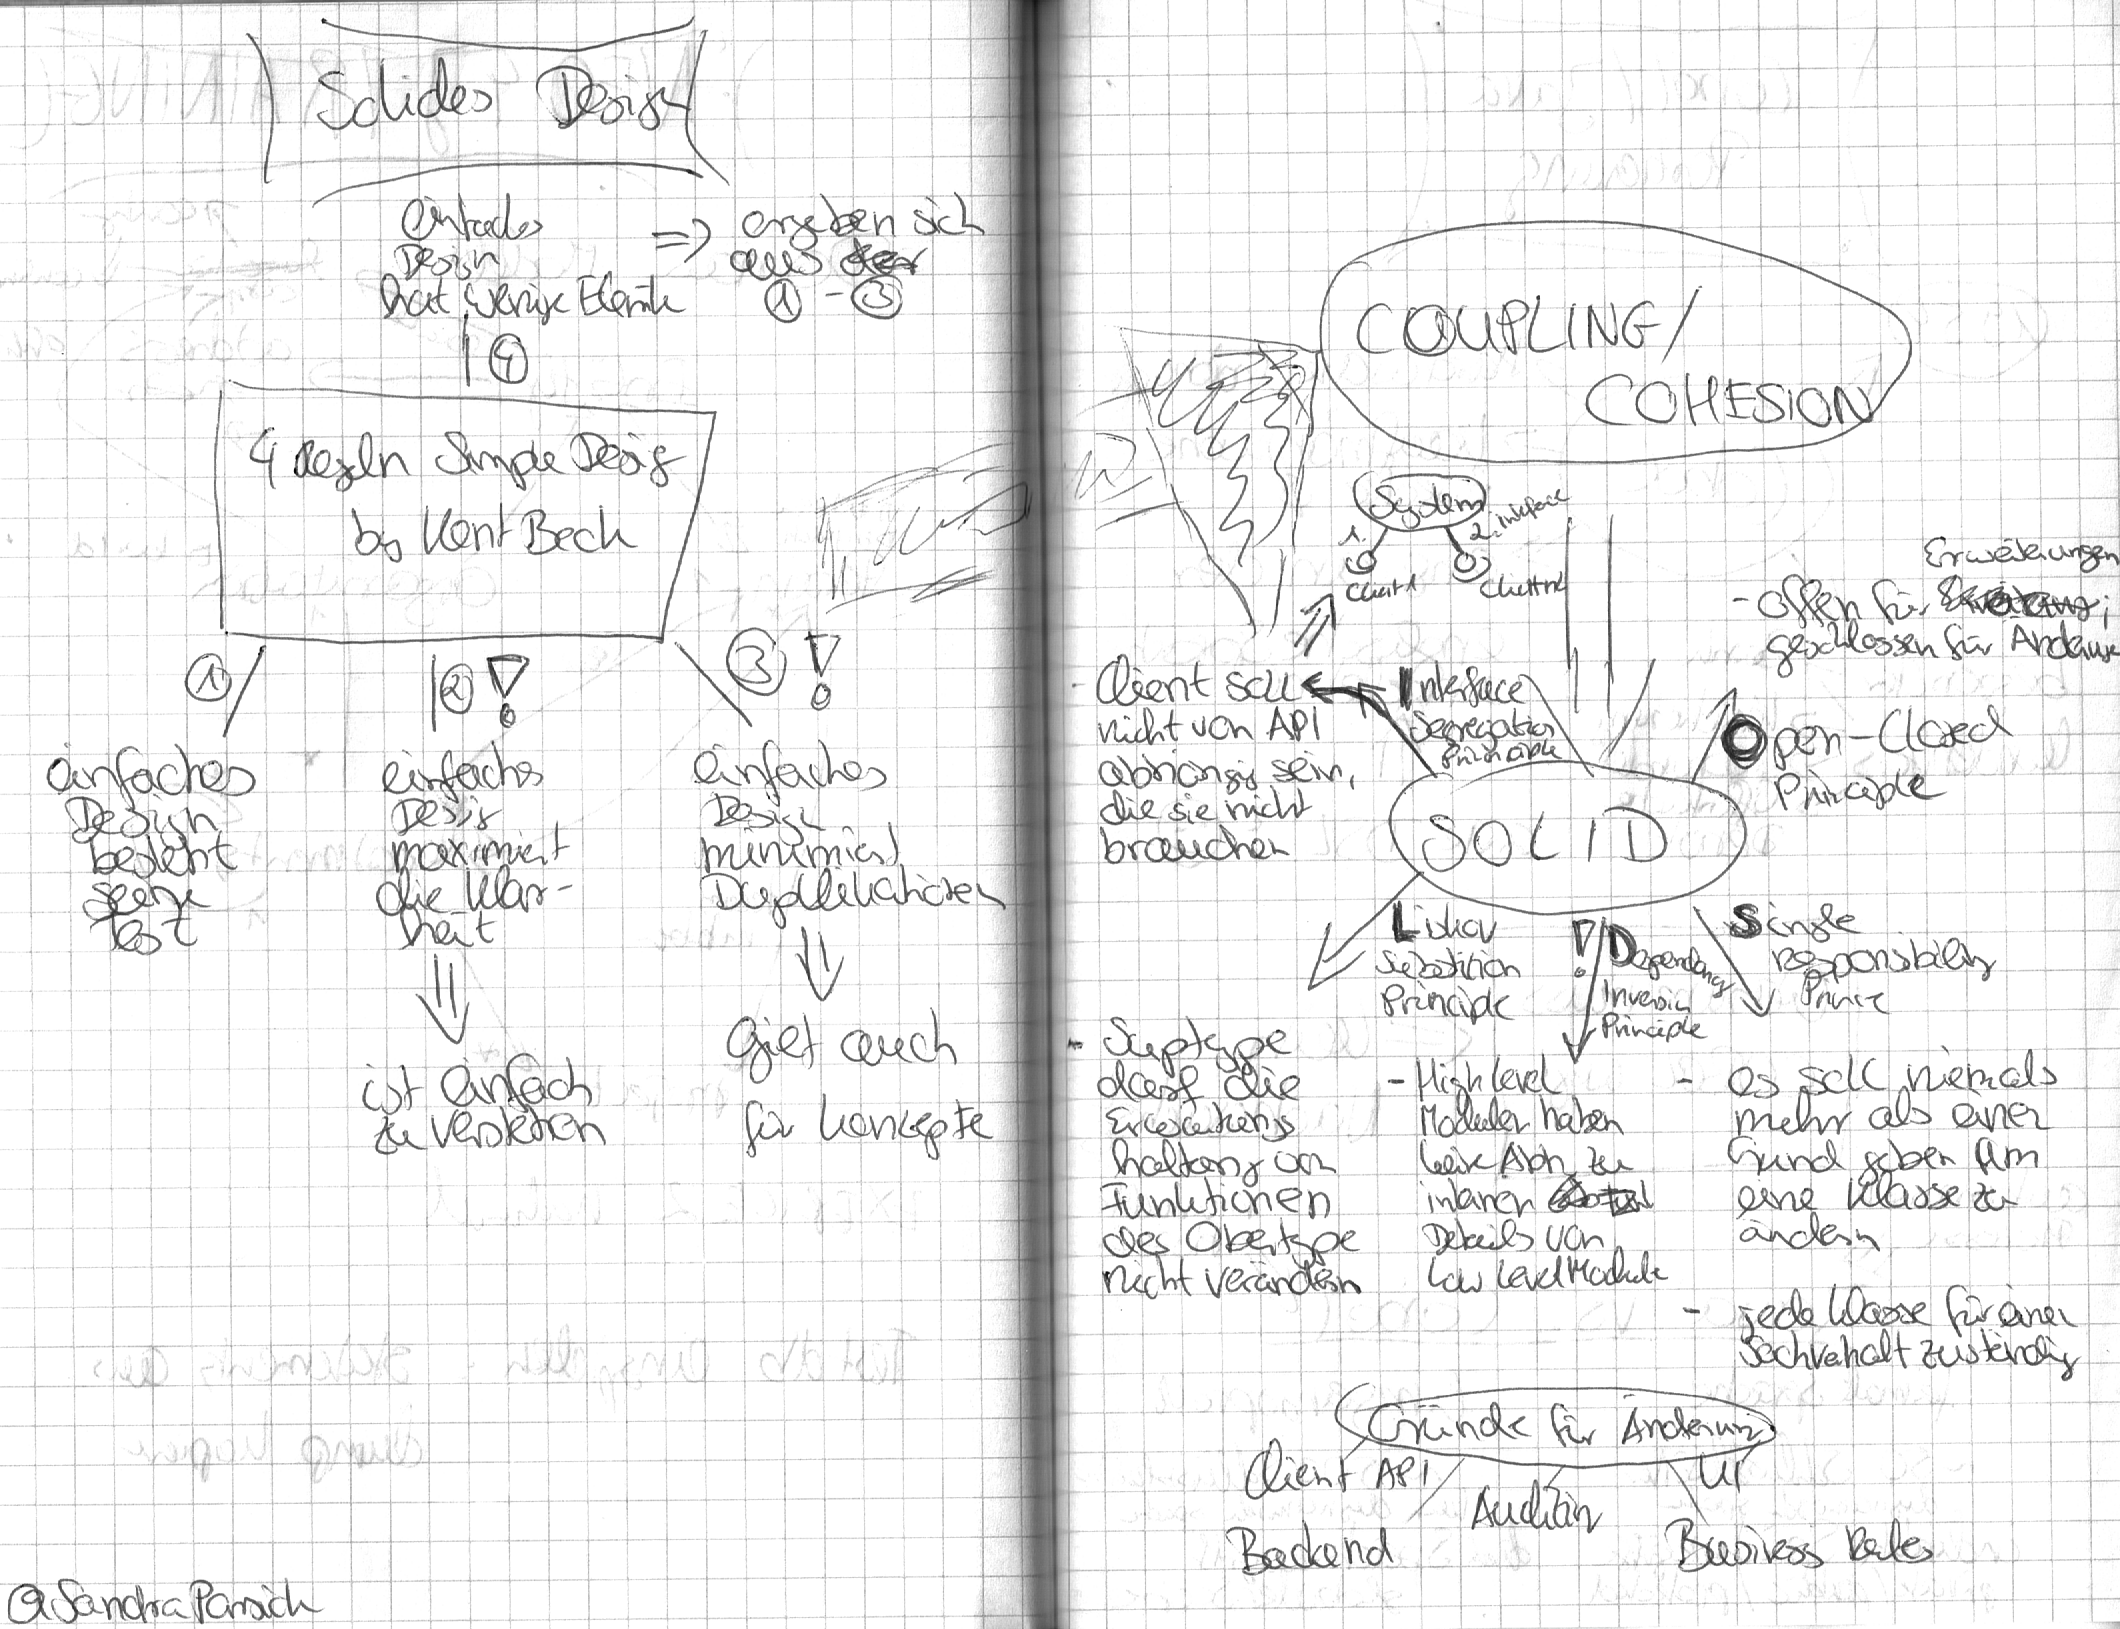 Solides Design
einfaches
Design
hat wenige Elemte
=> ergeben sich
aus
① - ③
④
4 Regeln Simple Desig
by Kent Beck
①
einfaches
Design
besteht
seine
Test
② !
einfaches
Desig
maximiert
die Klar-
heit
ist einfach
zu verstehen
③ !
einfaches
Design
minimiert
Duplikationen
Gilt auch
für Konzepte
@SandraParsick
COUPLING/
COHESION
System
1.
2. Interface
Client 1
Client n
Interface
Segregation
Principle
- Client soll
nicht von API
abhängig sein,
die sie nicht
brauchen
Erweiterungen
- offen für ;
geschlossen für Änderung
Open-Closed
Principle
SOLID
Liskov
Substition
Principle
- Suptype
darf die
Erwartungs
haltung von
Funktionen
des Obertype
nicht verändern
! Dependency
Inversion
Principle
- High level
Modulen haben
keine Abh. zu
internen
Details von
Low Level Module
Single
responsibility
Princ
- es soll niemals
mehr als einen
Grund geben um
eine Klasse zu
ändern
- jede Klasse für einen
Sachverhalt zuständig
Gründe für Änderung
Client API
UI
Backend
Business Rules